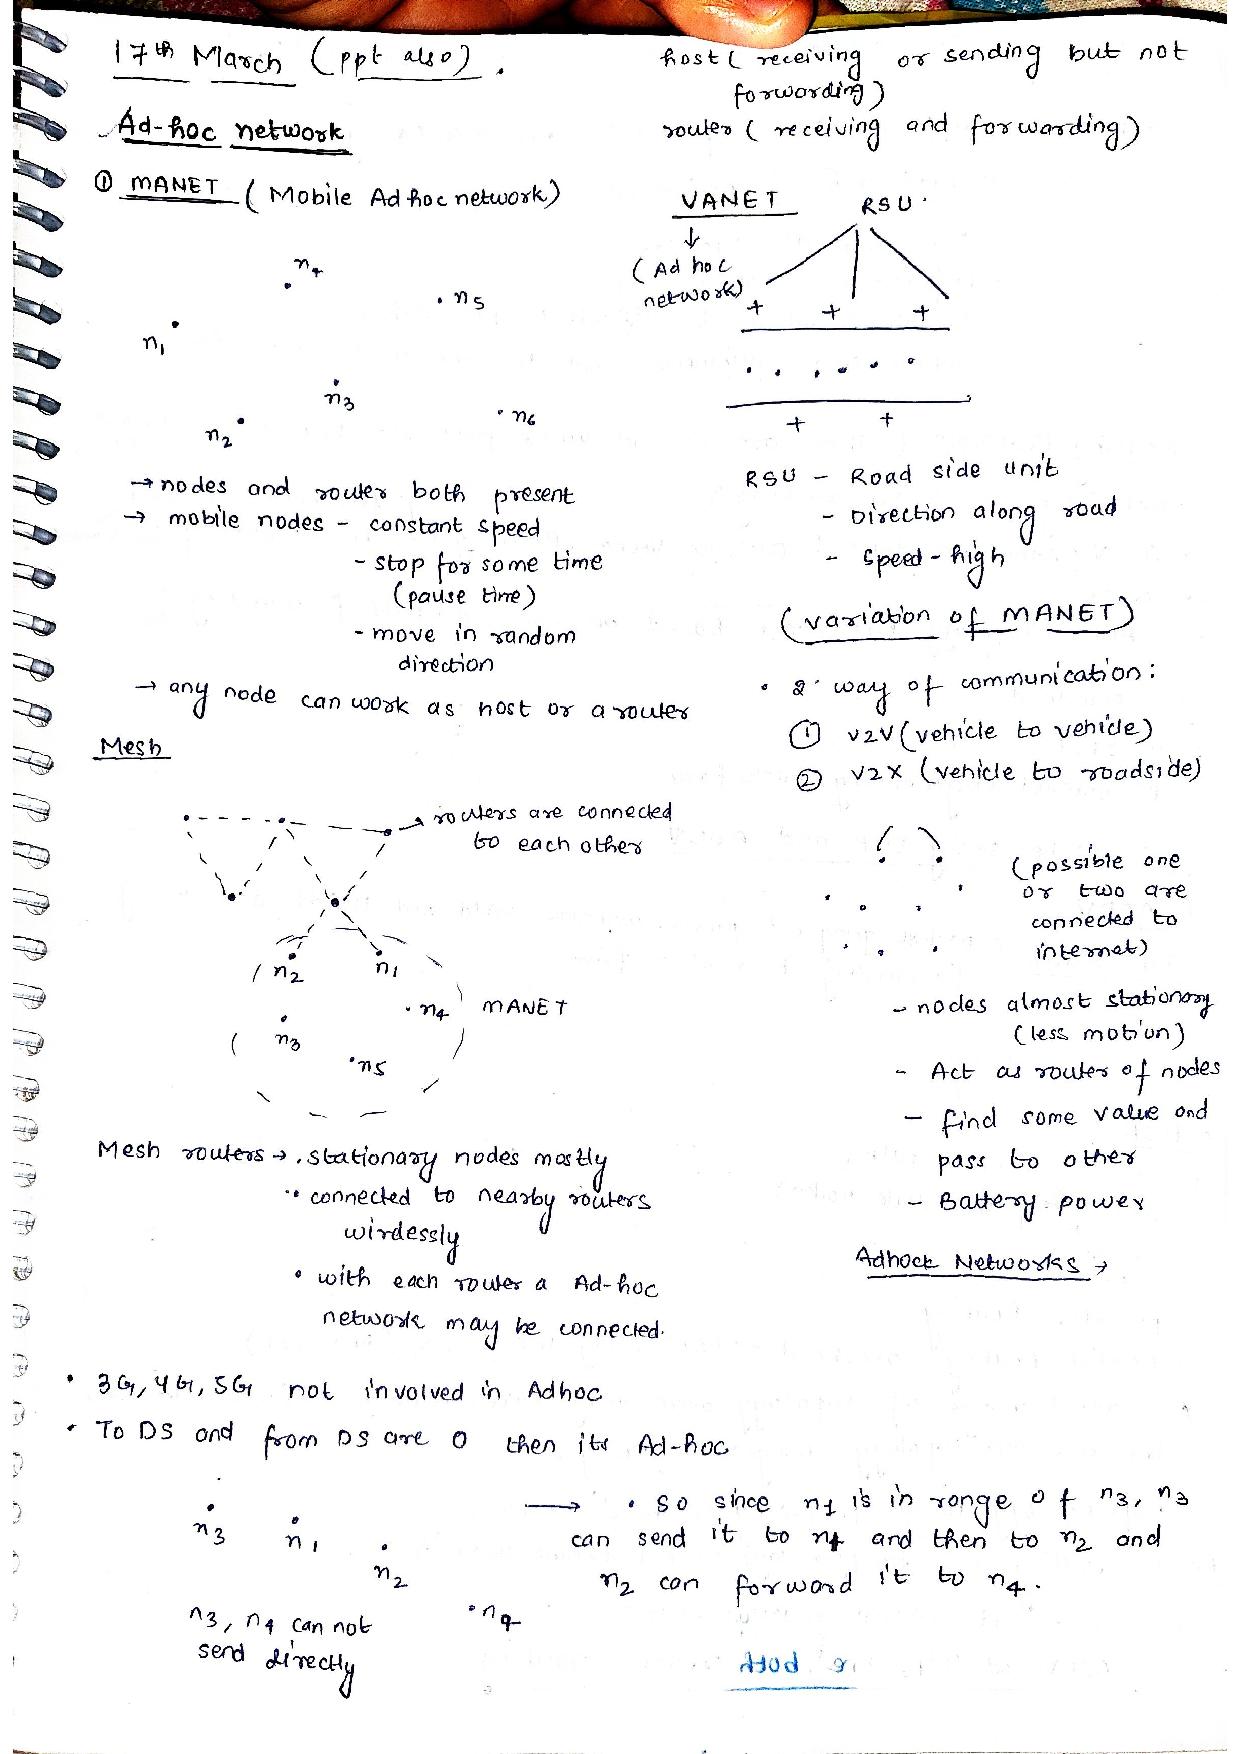 17th March (ppt also).
Ad-hoc network
① MANET (Mobile Ad hoc network)
n4
n5
n1
n3
n6
n2
→ nodes and router both present
→ mobile nodes - constant speed
- stop for some time
(pause time)
- move in random
direction
→ any node can work as host or a router
Mesh
→ routers are connected
to each other
n2
n1
n4
MANET
n3
n5
Mesh routers → . stationary nodes mostly
• connected to nearby routers
wirelessly
• with each router a Ad-hoc
network may be connected.
host ( receiving or sending but not
forwarding)
router ( receiving and forwarding)
VANET
RSU
↓
( Ad hoc
network)
+ + +
+ +
RSU - Road side unit
- Direction along road
- Speed - high
(variation of MANET)
• 2 way of communication:
① V2V (vehicle to vehicle)
② V2X (vehicle to roadside)
(possible one
or two are
connected to
internet)
- nodes almost stationary
(less motion)
- Act as router of nodes
- find some value and
pass to other
- Battery power
Adhock Networks →
• 3G, 4G, 5G not involved in Adhoc
• To DS and from DS are 0 then its Ad-hoc
n3
n1
n2
n4
n3, n4 can not
send directly
→ • so since n1 is in range of n3, n3
can send it to n1 and then to n2 and
n2 can forward it to n4.